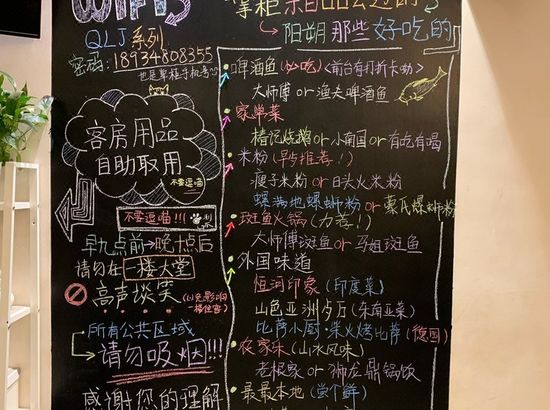 WIFI
QLJ系列
密码:18934808355
也是掌柜手机号
客房用品
自助取用
不要逗喵
不要逗喵!!!
早九点前→晚十点后
请勿在一楼大堂
高声谈笑(以免影响一楼住客)
所有公共区域
请勿吸烟!!!
感谢您的理解
阳朔那些好吃的
啤酒鱼(必吃)<前台有打折卡哟>
大师傅or渔夫啤酒鱼
家常菜
椿记烧鹅or小南国or有吃有喝
米粉(早餐推荐!)
瘦子米粉or日头火米粉
螺满地螺蛳粉or蒙氏螺蛳粉
斑鱼火锅(力荐!)
大师傅斑鱼or马姐斑鱼
外国味道
恒河印象(印度菜)
山色亚洲歺厅(东南亚菜)
比萨小厨·柴火烤比萨(德国)
农家乐(山水风味)
老根家or狮龙鼎锅饭
最最本地(尝个鲜)